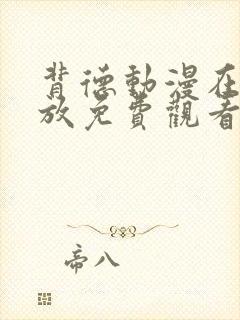 背德動漫在
放免費觀看
帝八